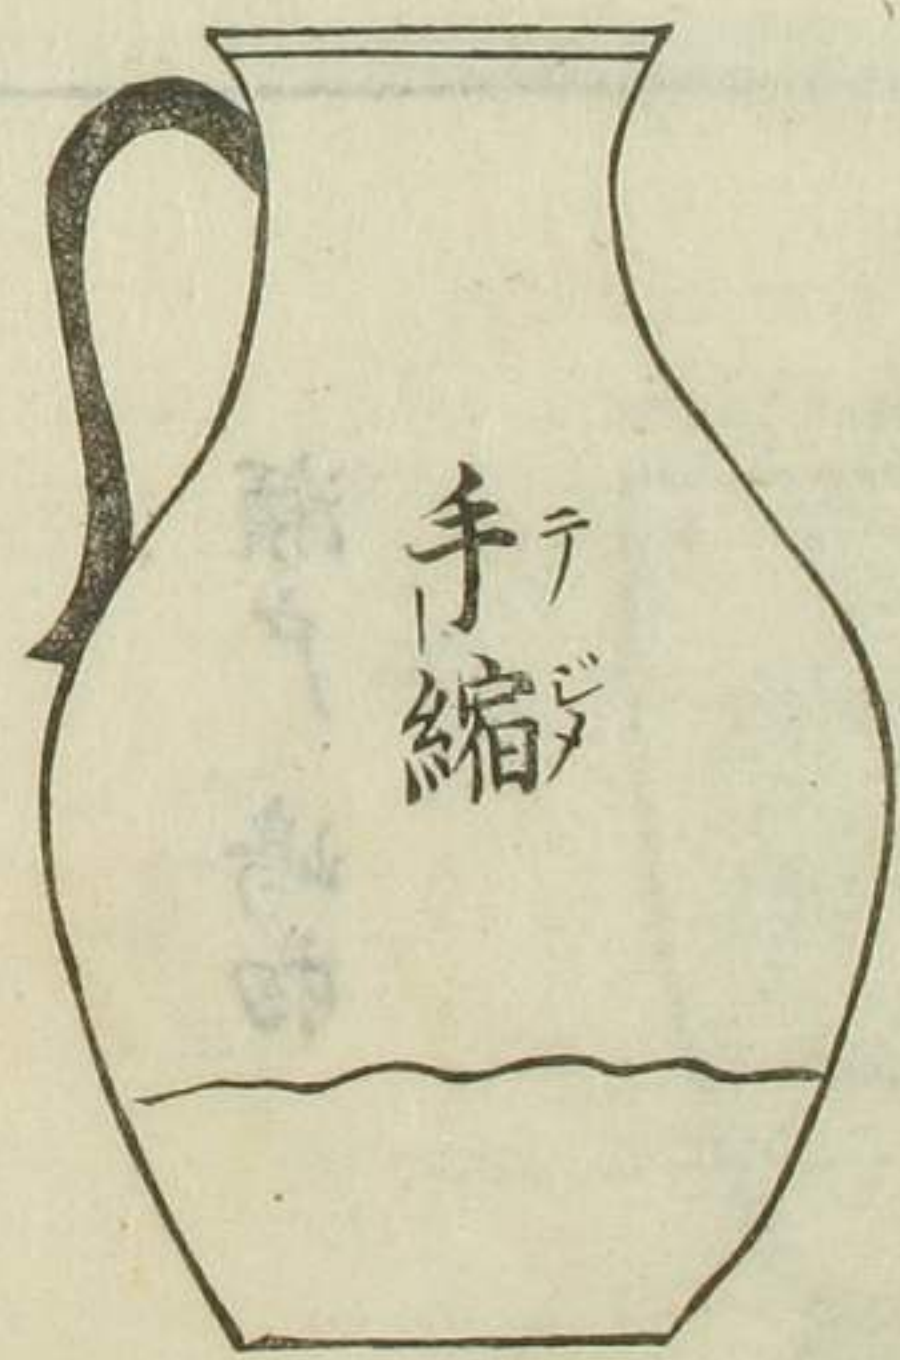 手縮
テジメ